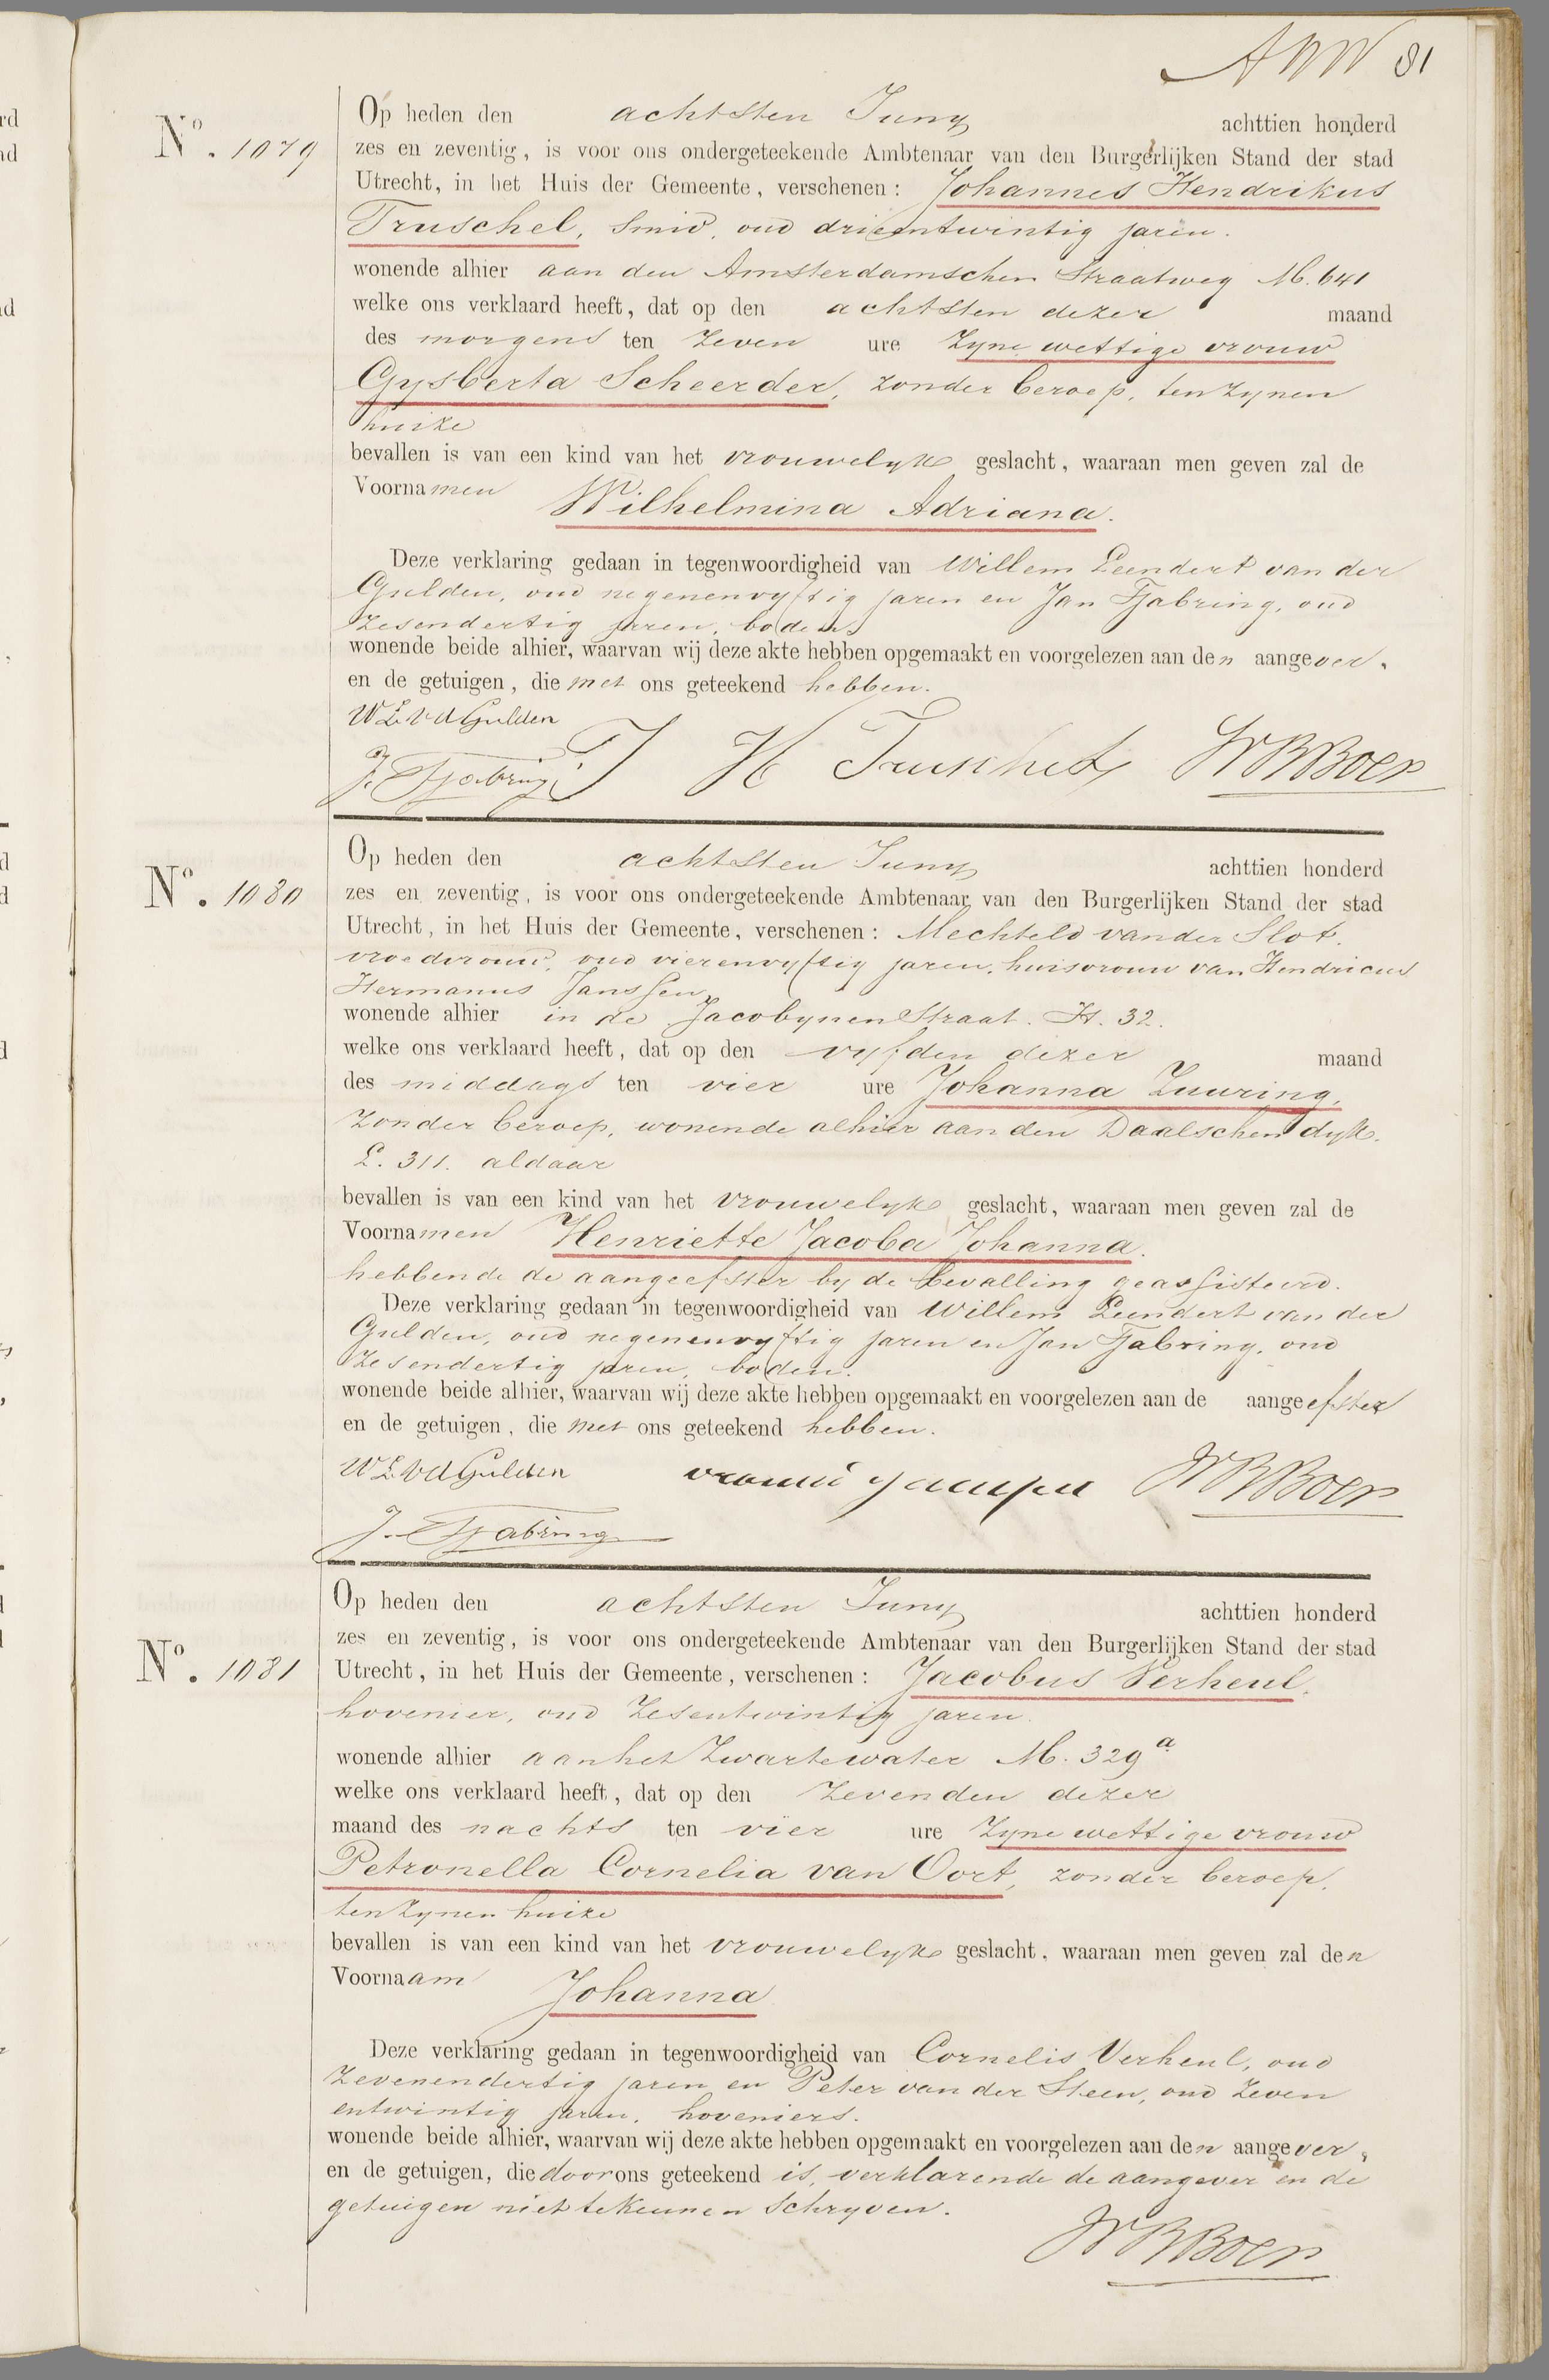 81
Nº. 1079
Op heden den achtsten Juny achttien honderd
zes en zeventig, is voor ons ondergeteekende Ambtenaar van den Burgerlijken Stand der stad
Utrecht, in het Huis der Gemeente, verschenen: Johannes Hendrikus
Truschel, Smid, oud drieentwintig jaren.
wonende alhier aan den Amsterdamschen Straatweg M. 641
welke ons verklaard heeft, dat op den achtsten dezer maand
des morgens ten zeven ure zyne wettige vrouw
Gysberta Scheerder, zonder beroep, ten zynen
huize
bevallen is van een kind van het vrouwelyk geslacht, waaraan men geven zal de
Voornamen Wilhelmina Adriana.
Deze verklaring gedaan in tegenwoordigheid van Willem Leendert van der
Gulden, oud negenenvyftig jaren en Jan Tjabring, oud
zesendertig jaren, boden.
wonende beide alhier, waarvan wij deze akte hebben opgemaakt en voorgelezen aan den aangever,
en de getuigen, die met ons geteekend hebben.
W L v d Gulden
J. Tjabring J H Truschel W B Boer
Nº. 1080
Op heden den achtsten Juny achttien honderd
zes en zeventig, is voor ons ondergeteekende Ambtenaar van den Burgerlijken Stand der stad
Utrecht, in het Huis der Gemeente, verschenen: Mechteld van der Slot,
vroedvrouw, oud vierenvyftig jaren, huisvrouw van Hendricus
Hermanus Janssen,
wonende alhier in de Jacobynen Straat. H. 32.
welke ons verklaard heeft, dat op den vyfden dezer maand
des middags ten vier ure Johanna Zuuring,
zonder beroep, wonende alhier aan den Daalschen dyk.
L. 311. aldaar
bevallen is van een kind van het vrouwelyk geslacht, waaraan men geven zal de
Voornamen Henriette Jacoba Johanna.
hebbende de aangeefster by de bevalling geassisteerd.
Deze verklaring gedaan in tegenwoordigheid van Willem Leendert van der
Gulden, oud negenenvyftig jaren en Jan Tjabring, oud
zesendertig jaren, boden.
wonende beide alhier, waarvan wij deze akte hebben opgemaakt en voorgelezen aan de aangeefster
en de getuigen, die met ons geteekend hebben.
W L v d Gulden vrouw W B Boer
J. Tjabring
Nº. 1081
Op heden den achtsten Juny achttien honderd
zes en zeventig, is voor ons ondergeteekende Ambtenaar van den Burgerlijken Stand der stad
Utrecht, in het Huis der Gemeente, verschenen: Jacobus Verheul,
hovenier, oud zesentwintig jaren.
wonende alhier aan het Zwartewater M. 329 a.
welke ons verklaard heeft, dat op den zevenden dezer
maand des nachts ten vier ure zyne wettige vrouw
Petronella Cornelia van Oort, zonder beroep,
ten zynen huize
bevallen is van een kind van het vrouwelyk geslacht, waaraan men geven zal den
Voornaam Johanna
Deze verklaring gedaan in tegenwoordigheid van Cornelis Verheul, oud
zevenendertig jaren en Peter van der Steen, oud zeven
entwintig jaren, hoveniers.
wonende beide alhier, waarvan wij deze akte hebben opgemaakt en voorgelezen aan den aangever,
en de getuigen, die door ons geteekend is, verklarende de aangever en de
getuigen niet te kunnen schryven.
W B Boer